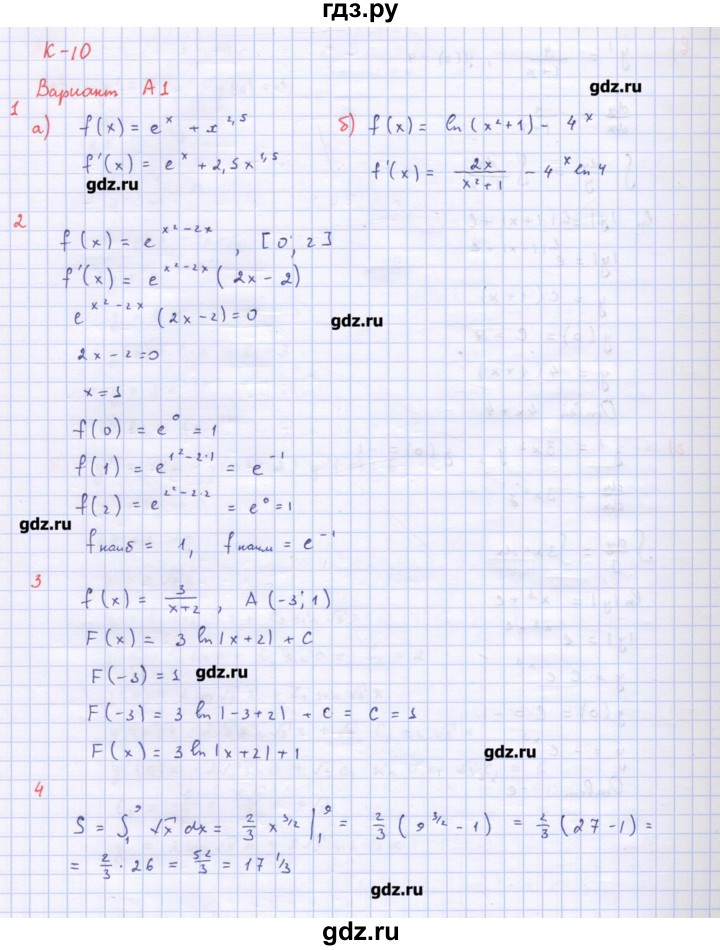 гдз.ру
К-10
gdz.ru
Вариант А1
1
а) f(x) = e^x + x^{2,5}
б) f(x) = ln(x²+1) - 4^x
f'(x) = e^x + 2,5x^{1,5}
f'(x) = 2x/(x²+1) - 4^x ln4
gdz.ru
2
f(x) = e^{x²-2x}, [0; 2]
f'(x) = e^{x²-2x}(2x-2)
e^{x²-2x}(2x-2)=0
gdz.ru
2x-2=0
x=1
f(0) = e^0 = 1
f(1) = e^{1²-2·1} = e^{-1}
f(2) = e^{2²-2·2} = e^0 = 1
gdz.ru
fнаиб = 1, fнаим = e^{-1}
3
f(x) = 3/(x+2), A(-3; 1)
F(x) = 3 ln|x+2| + C
F(-3) = 1
gdz.ru
F(-3) = 3 ln|-3+2| + C = C = 1
F(x) = 3 ln|x+2| + 1
gdz.ru
4
S = ∫₁⁹ √x dx = 2/3 x^{3/2} |₁⁹ = 2/3 (9^{3/2} - 1) = 2/3 (27-1) =
= 2/3 · 26 = 52/3 = 17 1/3
gdz.ru
gdz.ru